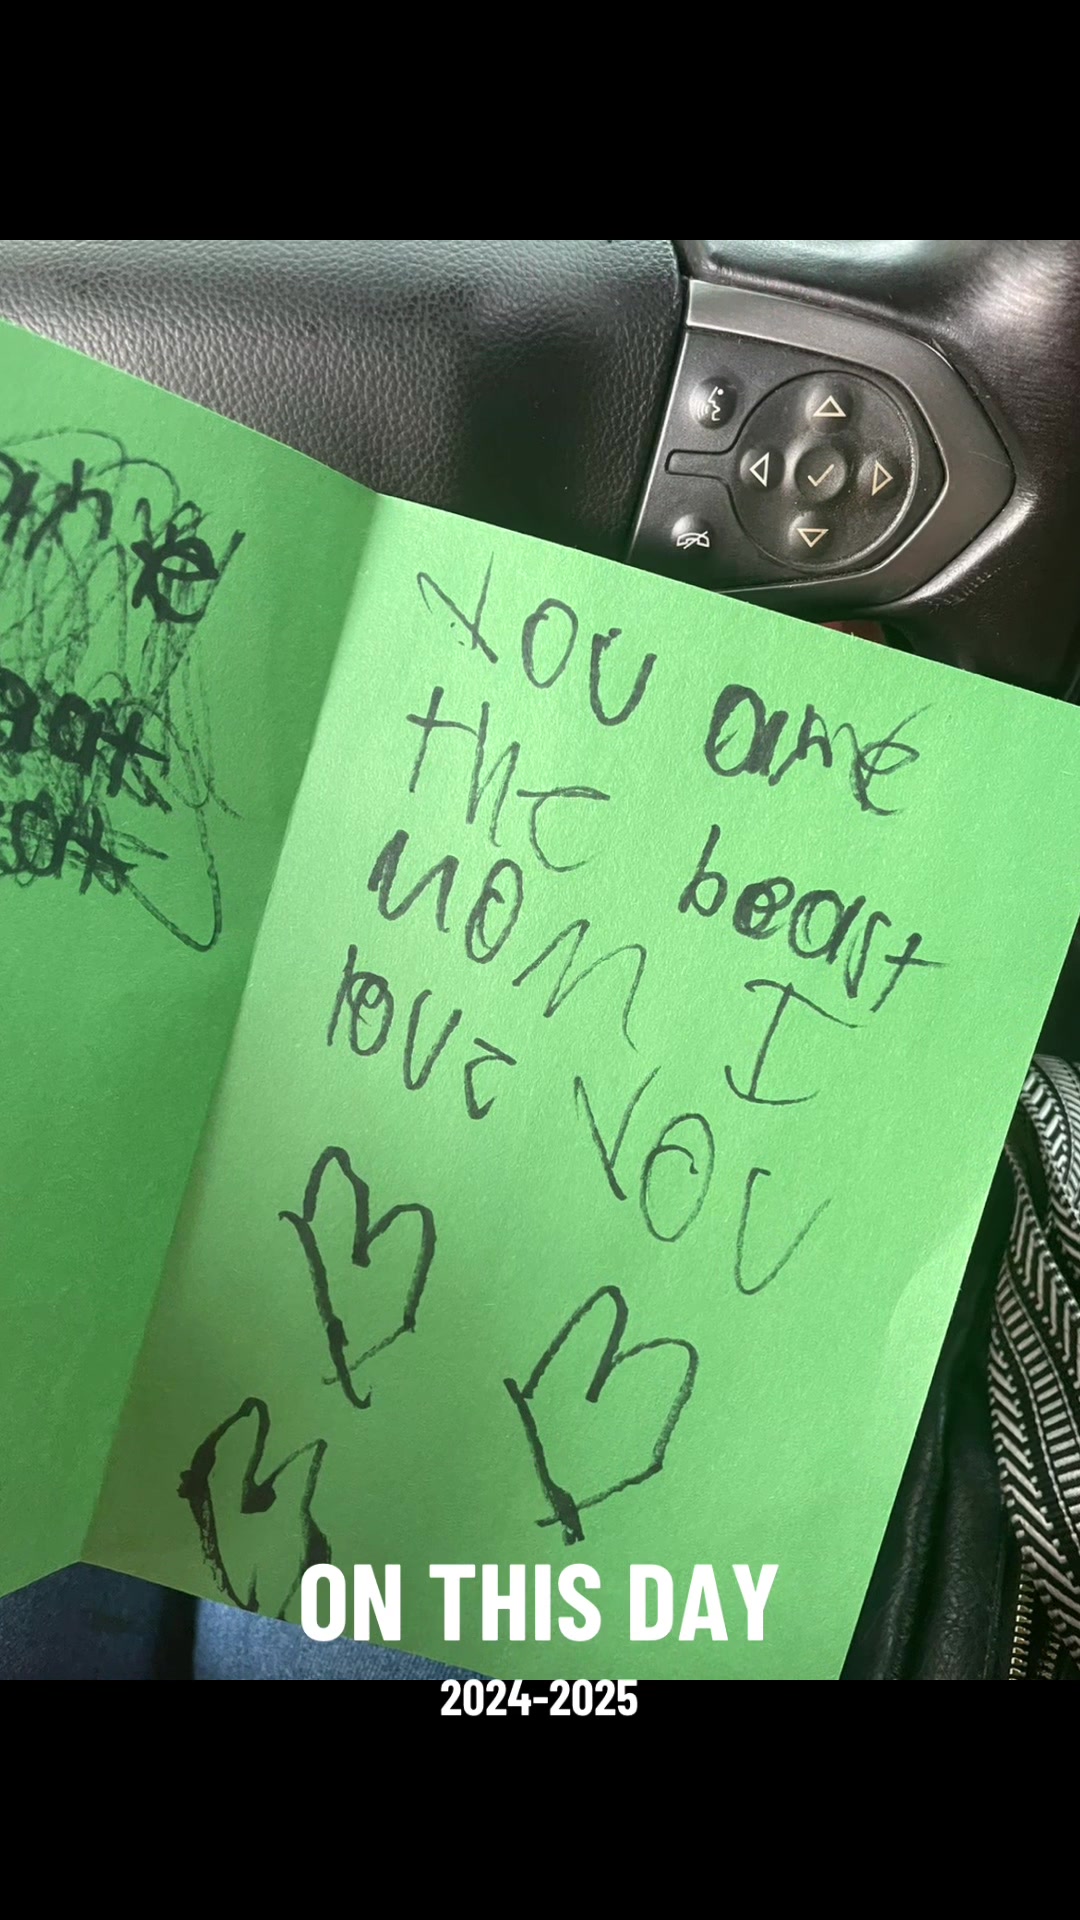 You are
the beast
mom I
love you
ON THIS DAY
2024-2025